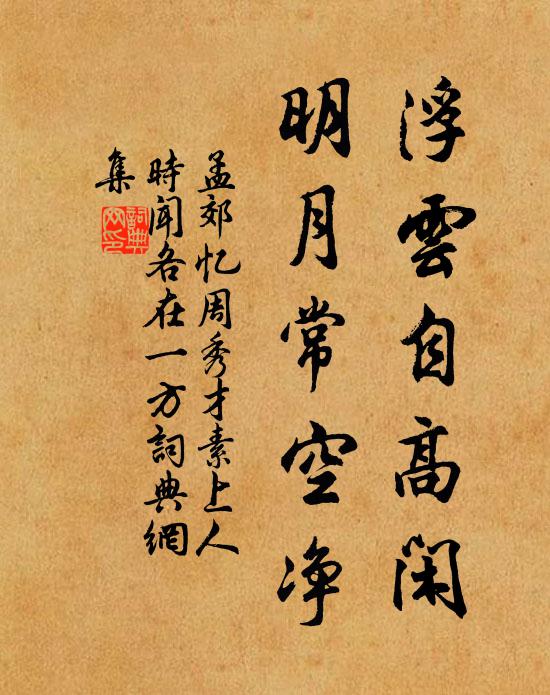 浮雲自高閑
明月常空净
孟郊忆周秀才素上人
時闻各在一方詞典網
集
詞典网印